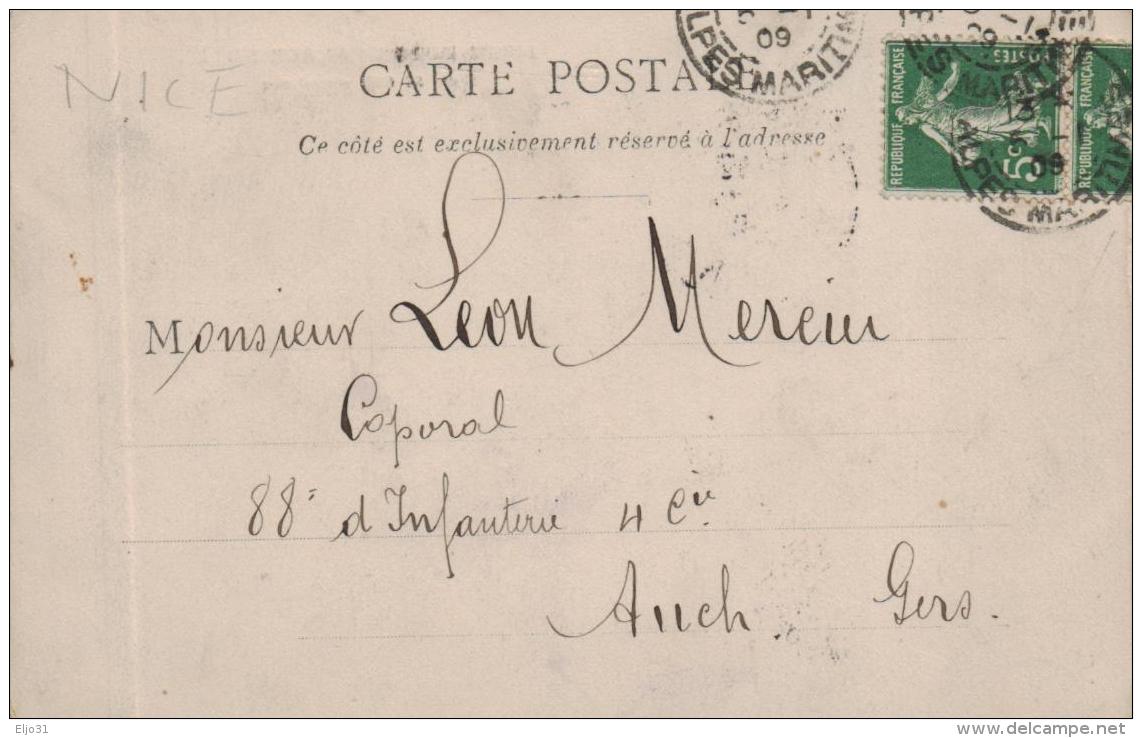 NICE
CARTE POSTALE
Ce côté est exclusivement réservé à l'adresse
09
ALPES MARITIM
RÉPUBLIQUE FRANÇAISE
POSTES
5c
RÉPUBLIQUE FRANÇAISE
09
ALPES MARITIM
Monsieur Leon Mercier
Caporal
88e d'Infanterie 4 Cie
Auch Gers.
Eljo31
www.delcampe.net